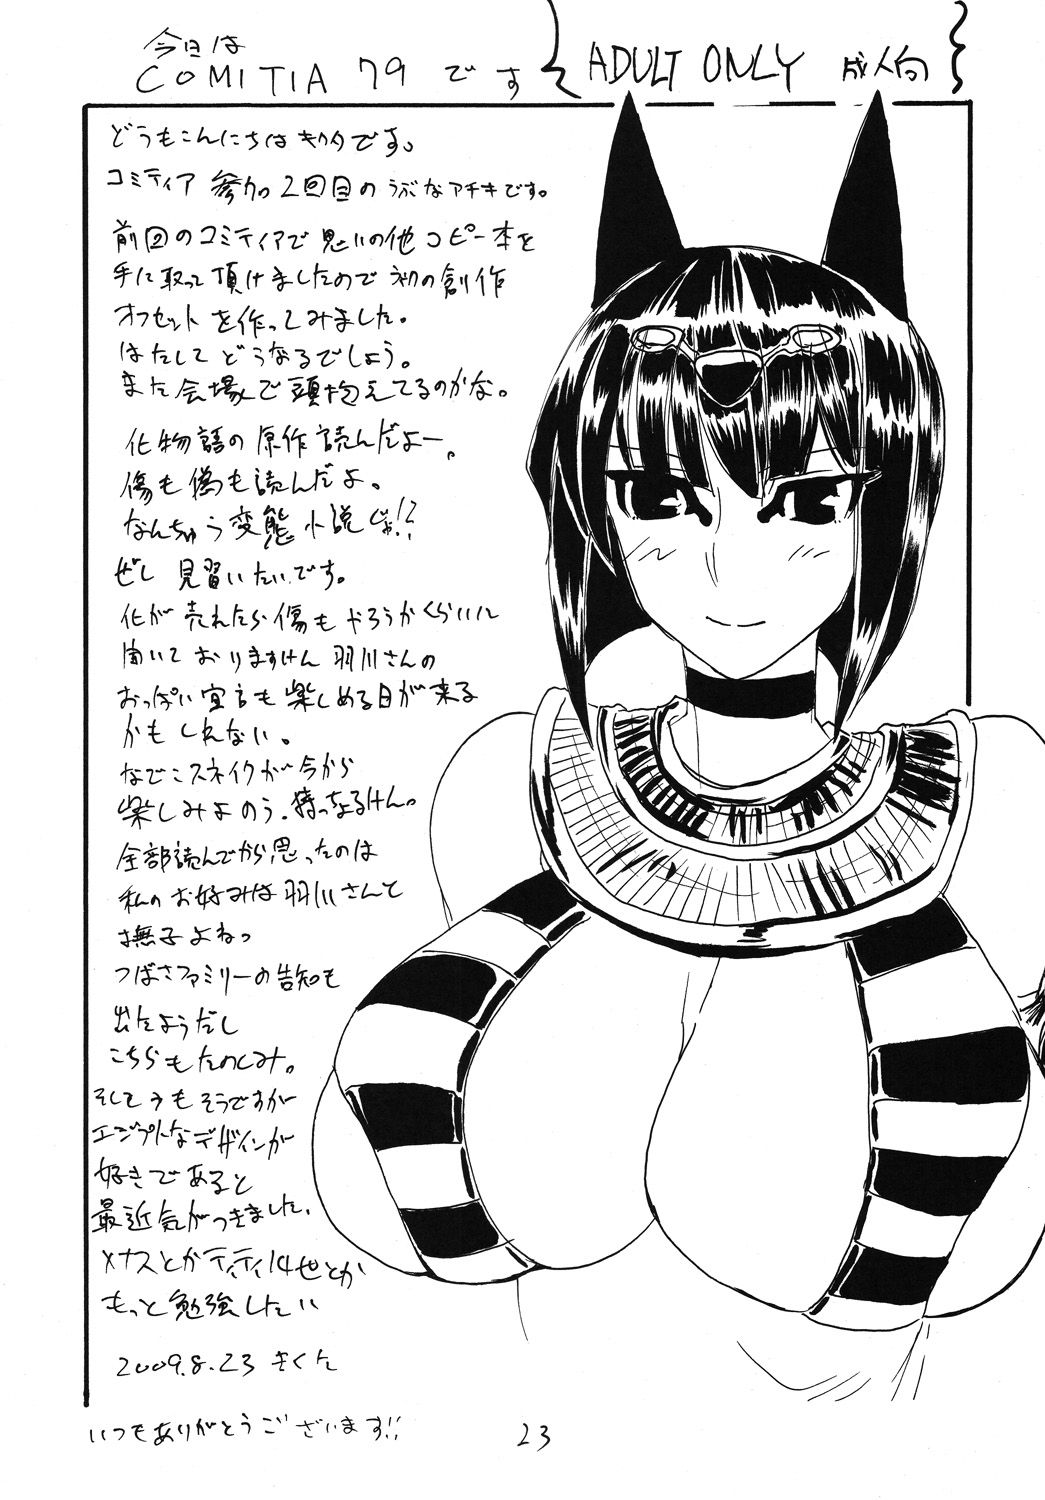 今日は
COMITIA 79 です
ADULT ONLY 成人向
どうもこんにちはキクタです。
コミティア 参加2回目の うぶなアチキです。
前回のコミティアで 思いの他 コピー本を
手に取って頂けましたので 初の創作
オフセットを作ってみました。
はたして どうなるでしょう。
また会場で頭抱えてるのかな。
化物語の原作読んだよー。
傷も偽も読んだよ。
なんちゅう変態小説じゃ!?
ぜし 見習いたいです。
化が売れたら傷もやろうかくらいに
聞いて おりますけん 羽川さんの
おっぱい宣言も楽しめる日が来る
かもしれない。
なでこスネイクが今から
楽しみよのう。待っちょるけん。
全部読んでから思ったのは
私のお好みは羽川さんと
撫子よねっ
つばさファミリーの告知も
出たようだし
こちらもたのしみ。
そして うもそうですが
エジプトなデザインが
好きであると
最近気がつきました。
メナスとかティティ14世とか
もっと勉強したい
2009.8.23 きくた
いつもありがとうございます!!
23